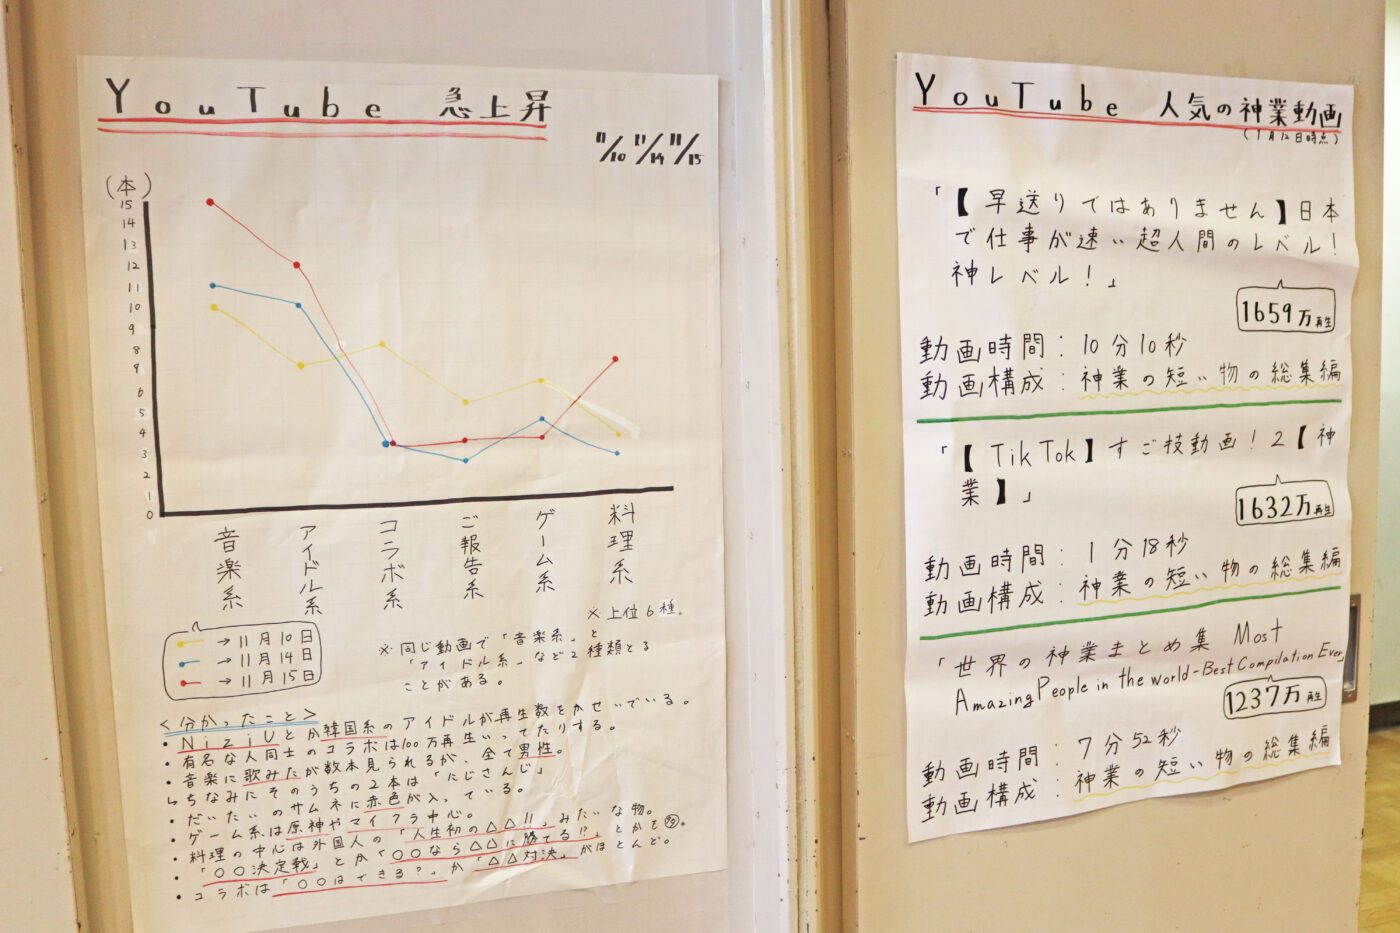 YouTube 急上昇
11/10 11/14 11/15
(本)
15
14
13
12
11
10
9
8
7
6
5
4
3
2
1
0
音楽系
アイドル系
コラボ系
ご報告系
ゲーム系
料理系
※上位6種。
→11月10日
→11月14日
→11月15日
※同じ動画で「音楽系」と
「アイドル系」など2種類とる
ことがある。
<分かったこと>
・NiziUとか韓国系のアイドルが再生数をかせいでいる。
・有名な人同士のコラボは100万再生いってたりする。
・音楽に歌みたが数本見られるが、全て男性。
↳ちなみにそのうちの2本は「にじさんじ」
・だいたいのサムネに赤色が入っている。
・ゲーム系は原神やマイクラ中心。
・料理の中心は外国人の「人生初の△△!!」みたいな物。
・「〇〇決定戦」とか「〇〇なら△△に勝てる!?」とかも多。
・コラボは「〇〇はできる?」か「△△対決」がほとんど。
YouTube 人気の神業動画
(1月12日時点)
「【早送りではありません】日本
で仕事が速い超人間のレベル!
神レベル!」
1659万再生
動画時間:10分10秒
動画構成:神業の短い物の総集編
「【TikTok】すご技動画!2【神
業】」
1632万再生
動画時間:1分18秒
動画構成:神業の短い物の総集編
「世界の神業まとめ集 Most
Amazing People in the world-Best Compilation Ever」
1237万再生
動画時間:7分52秒
動画構成:神業の短い物の総集編